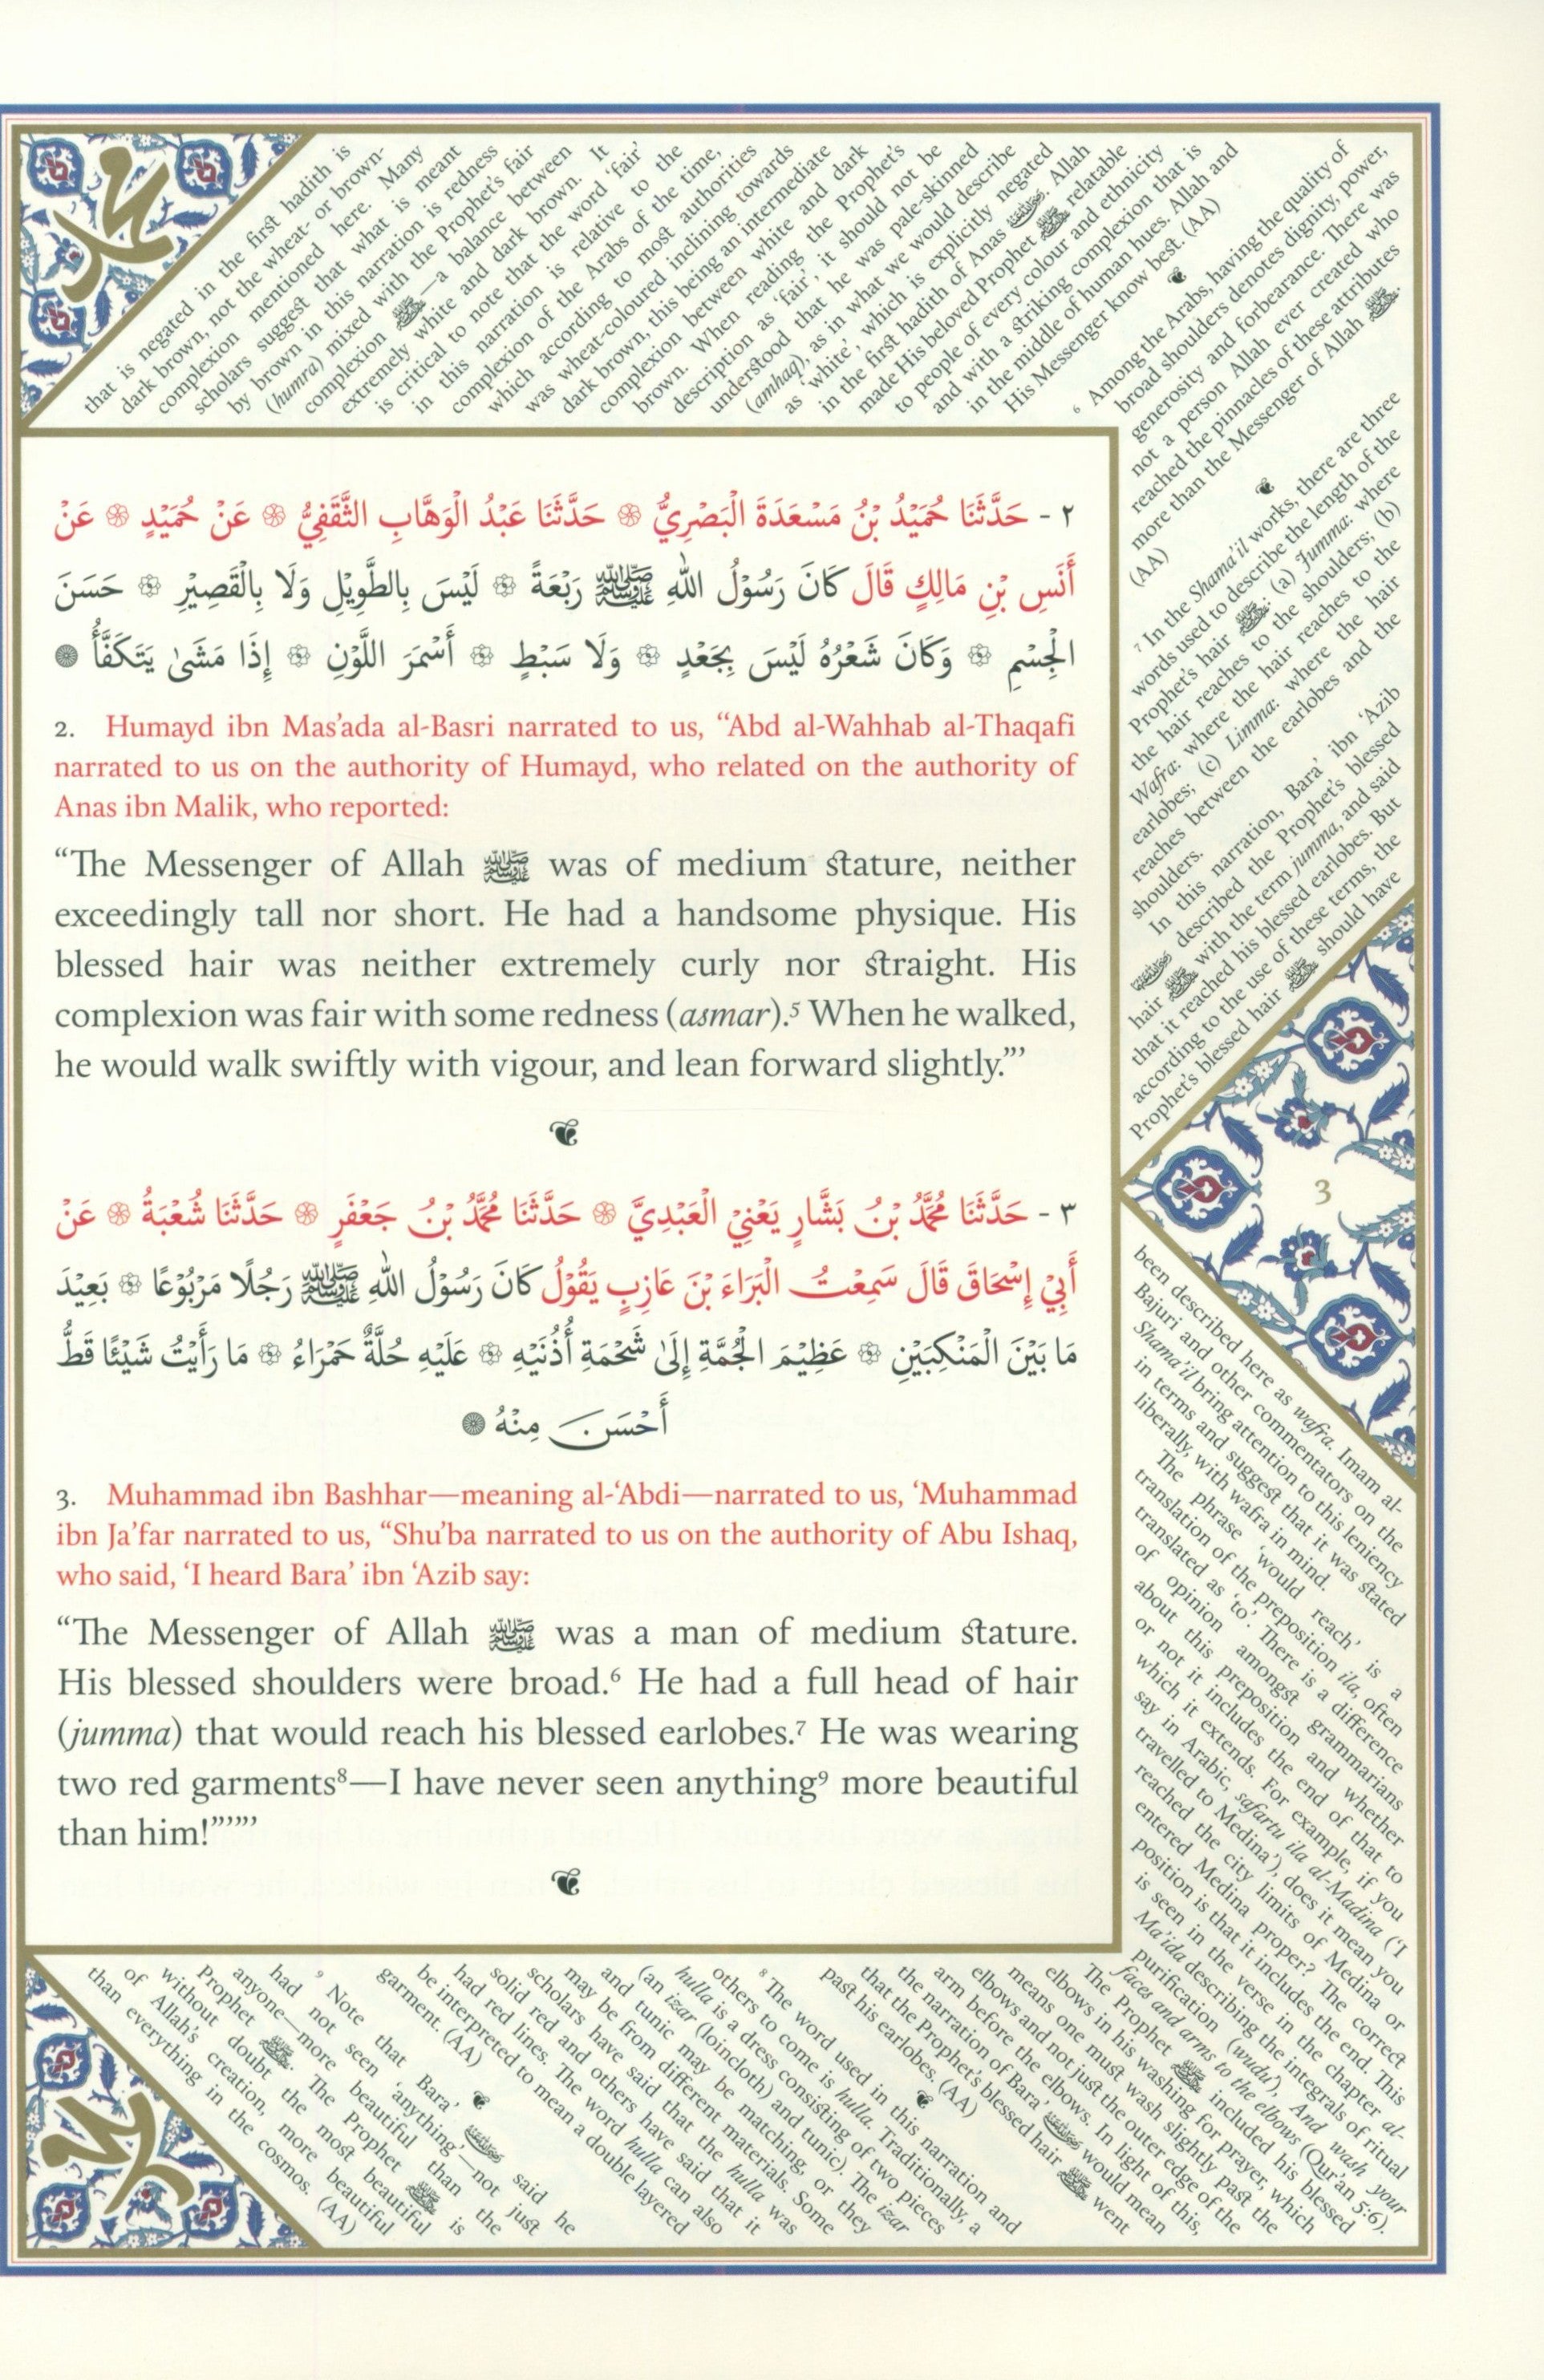 ٢ - حَدَّثَنَا حُمَيْدُ بْنُ مَسْعَدَةَ الْبَصْرِيُّ ۞ حَدَّثَنَا عَبْدُ الْوَهَّابِ الثَّقَفِيُّ ۞ عَنْ حُمَيْدٍ ۞ عَنْ
أَنَسِ بْنِ مَالِكٍ قَالَ كَانَ رَسُوْلُ اللهِ ﷺ رَبْعَةً ۞ لَيْسَ بِالطَّوِيْلِ وَلَا بِالْقَصِيْرِ ۞ حَسَنَ
الْجِسْمِ ۞ وَكَانَ شَعْرُهُ لَيْسَ بِجَعْدٍ ۞ وَلَا سَبْطٍ ۞ أَسْمَرَ اللَّوْنِ ۞ إِذَا مَشَىٰ يَتَكَفَّأُ
2. Humayd ibn Mas’ada al-Basri narrated to us, “Abd al-Wahhab al-Thaqafi
narrated to us on the authority of Humayd, who related on the authority of
Anas ibn Malik, who reported:
“The Messenger of Allah ﷺ was of medium stature, neither
exceedingly tall nor short. He had a handsome physique. His
blessed hair was neither extremely curly nor straight. His
complexion was fair with some redness (asmar).⁵ When he walked,
he would walk swiftly with vigour, and lean forward slightly.”’
٣ - حَدَّثَنَا مُحَمَّدُ بْنُ بَشَّارٍ يَعْنِيْ الْعَبْدِيَّ ۞ حَدَّثَنَا مُحَمَّدُ بْنُ جَعْفَرٍ ۞ حَدَّثَنَا شُعْبَةُ ۞ عَنْ
أَبِيْ إِسْحَاقَ قَالَ سَمِعْتُ الْبَرَاءَ بْنَ عَازِبٍ يَقُوْلُ كَانَ رَسُوْلُ اللهِ ﷺ رَجُلًا مَرْبُوْعًا ۞ بَعِيْدَ
مَا بَيْنَ الْمَنْكِبَيْنِ ۞ عَظِيْمَ الْجُمَّةِ إِلَىٰ شَحْمَةِ أُذُنَيْهِ ۞ عَلَيْهِ حُلَّةٌ حَمْرَاءُ ۞ مَا رَأَيْتُ شَيْئًا قَطُّ
أَحْسَنَ مِنْهُ
3. Muhammad ibn Bashhar—meaning al-‘Abdi—narrated to us, ‘Muhammad
ibn Ja’far narrated to us, “Shu’ba narrated to us on the authority of Abu Ishaq,
who said, ‘I heard Bara’ ibn ‘Azib say:
“The Messenger of Allah ﷺ was a man of medium stature.
His blessed shoulders were broad.⁶ He had a full head of hair
(jumma) that would reach his blessed earlobes.⁷ He was wearing
two red garments⁸—I have never seen anything⁹ more beautiful
than him!”’”’”
that is negated in the first hadith is
dark brown, not the wheat- or brown-
complexion mentioned here. Many
scholars suggest that what is meant
by brown in this narration is redness
(humra) mixed with the Prophet’s fair
complexion ﷺ—a balance between
extremely white and dark brown. It
is critical to note that the word ‘fair’
in this narration is relative to the
complexion of the Arabs of the time,
which according to most authorities
was wheat-coloured inclining towards
dark brown, this being an intermediate
complexion between white and dark
brown. When reading the Prophet’s
description as ‘fair’, it should not be
understood that he was pale-skinned
(amhaq), as in what we would describe
as ‘white’, which is explicitly negated
in the first hadith of Anas ﵁. Allah
made His beloved Prophet ﷺ relatable
to people of every colour and ethnicity
and with a striking complexion that is
in the middle of human hues. Allah and
His Messenger know best. (AA)
⁶ Among the Arabs, having the quality of
broad shoulders denotes dignity, power,
generosity and forbearance. There was
not a person Allah ever created who
reached the pinnacles of these attributes
more than the Messenger of Allah ﷺ.
(AA)
⁷ In the Shama’il works, there are three
words used to describe the length of the
Prophet’s hair ﷺ: (a) Jumma: where
the hair reaches to the shoulders; (b)
Wafra: where the hair reaches to the
earlobes; (c) Limma: where the hair
reaches between the earlobes and the
shoulders.
In this narration, Bara’ ibn ‘Azib
﵁ described the Prophet’s blessed
hair ﷺ with the term jumma, and said
that it reached his blessed earlobes. But
according to the use of these terms, the
Prophet’s blessed hair ﷺ should have
3
been described here as wafra. Imam al-
Bajuri and other commentators on the
Shama’il bring attention to this leniency
in terms and suggest that it was stated
liberally, with wafra in mind.
The phrase ‘would reach’ is a
translation of the preposition ila, often
translated as ‘to’. There is a difference
of opinion amongst grammarians
about this preposition and whether
or not it includes the end of that to
which it extends. For example, if you
say in Arabic, safartu ila al-Madina (‘I
travelled to Medina’), does it mean you
reached the city limits of Medina or
entered Medina proper? The correct
position is that it includes the end. This
is seen in the verse in the chapter al-
Ma’ida describing the integrals of ritual
purification (wudu’), And wash your
faces and arms to the elbows (Qur’an 5:6).
The Prophet ﷺ included his blessed
elbows in his washing for prayer, which
means one must wash slightly past the
elbows and not just the outer edge of the
arm before the elbows. In light of this,
the narration of Bara’ ﵁ would mean
that the Prophet’s blessed hair ﷺ went
past his earlobes. (AA)
⁸ The word used in this narration and
others to come is hulla. Traditionally, a
hulla is a dress consisting of two pieces
(an izar (loincloth) and tunic). The izar
and tunic may be matching, or they
may be from different materials. Some
scholars have said that the hulla was
solid red and others have said that it
had red lines. The word hulla can also
be interpreted to mean a double layered
garment. (AA)
⁹ Note that Bara’ ﵁ said he
had not seen ‘anything’—not just
anyone—more beautiful than the
Prophet ﷺ. The Prophet ﷺ is
without doubt the most beautiful
of Allah’s creation, more beautiful
than everything in the cosmos. (AA)